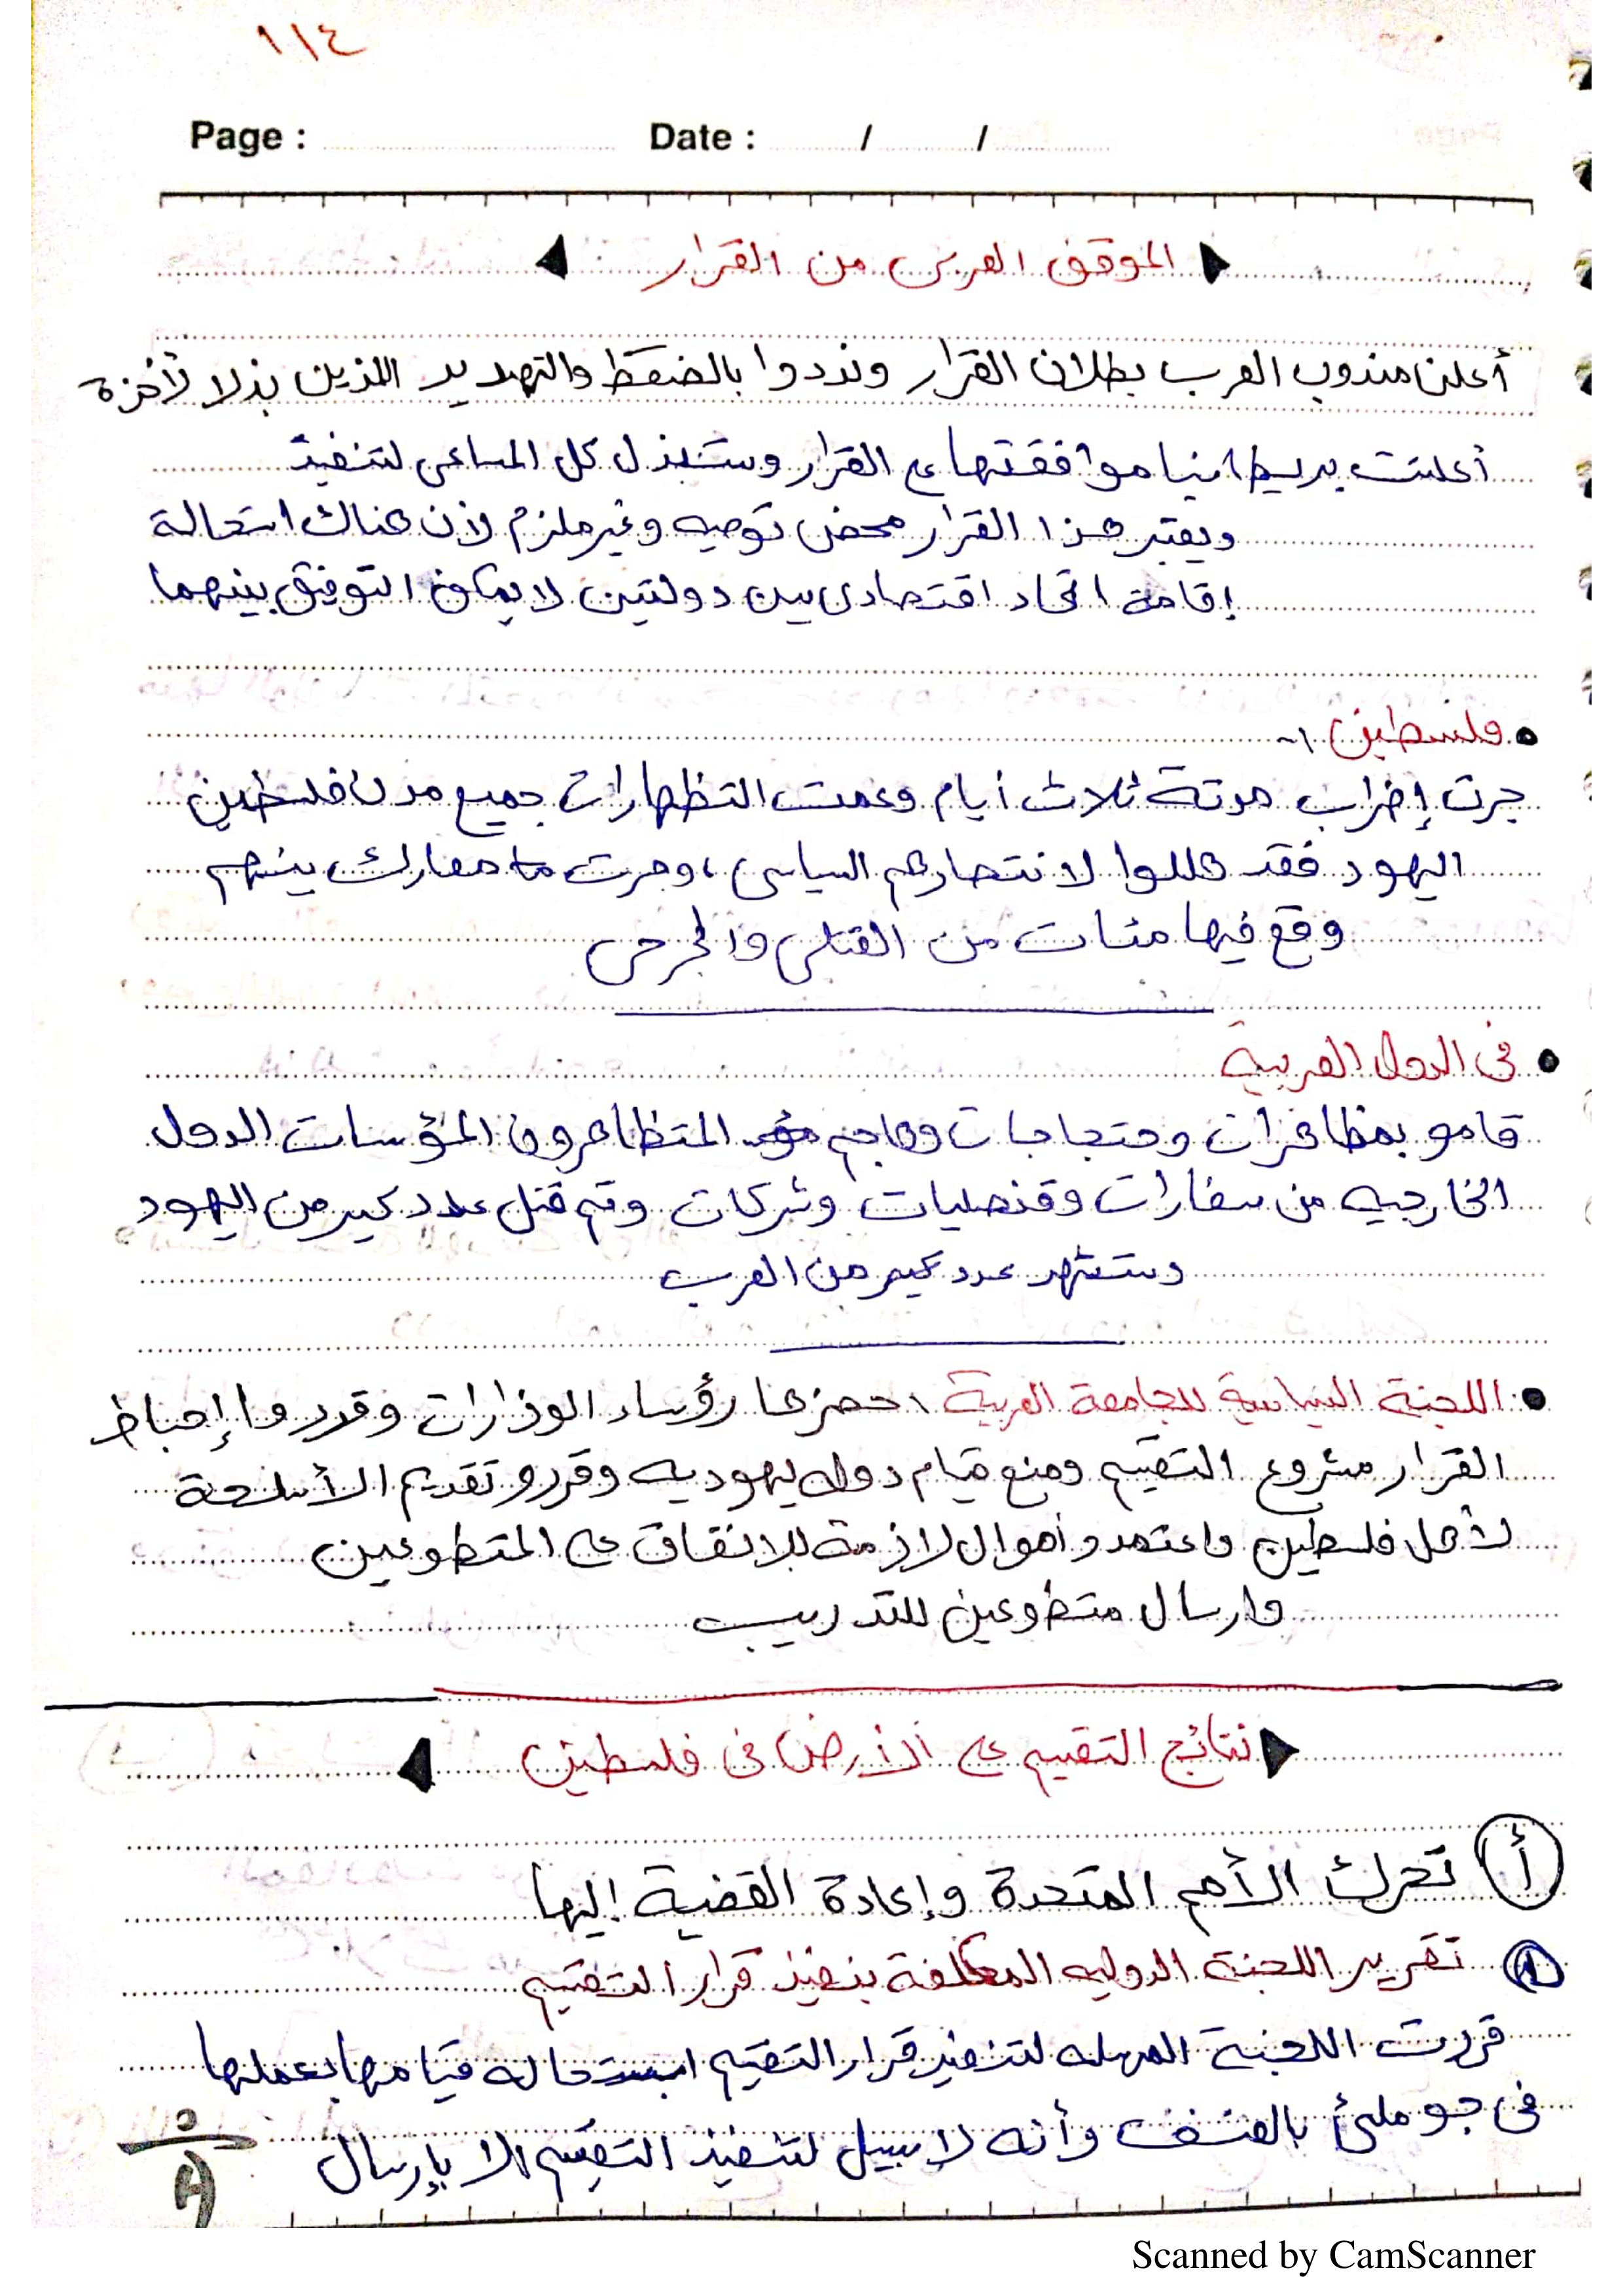 ١١٤
Page : Date : / /
الموقف العربى من القرار
أعلن مندوب العرب بطلان القرار ونددوا بالضغط والتهديد اللذين بذلا لأخرة
أعلنت بريطانيا موافقتها ع القرار وستبذل كل المساعى لتنفيذ
ويعتبر هذا القرار محض توصيه وغير ملزم لأن هناك استحالة
إقامة اتحاد اقتصادى بين دولتين لا يمكن التوفيق بينهما
فلسطين :-
جرت إضراب مدته ثلاث أيام وعمت التظهارات جميع مدن فلسطين
اليهود فقد هللوا لانتصارهم السياسى ، وجرت معارك بينهم
وقع فيها مئات من القتلى والجرحى
فى الدول العربية
قامو بمظاهرات وحتجاجات وهاجم المتظاهرون المؤسسات الدول
الخارجيه من سفارات وقنصليات وشركات وتم قتل عدد كبير من اليهود
وستشهد عدد كبير من العرب
اللجنة السياسية للجامعة العربية : حضرها رؤساء الوزارات وقرروا إحباط
القرار مشروع التقسيم ومنع قيام دوله يهوديه وقررو تقديم الأسلحة
لأهل فلسطين واعتمدو أموال لازمة للانفاق على المتطوعين
وارسال متطوعين للتدريب
نتائج التقسيم على الأرض فى فلسطين
أ تحرك الأمم المتحدة وإعادة القضية إليها
١ تقرير اللجنة الدوليه المكلفة بنفيذ قرار التقسيم
قررت اللجنة لتنفيذ قرار التقسيم استحاله قيامها بعملها
فى جو ملئ بالعنف وأنه لا سبيل لتنفيذ التقسيم إلا بإرسال
Scanned by CamScanner